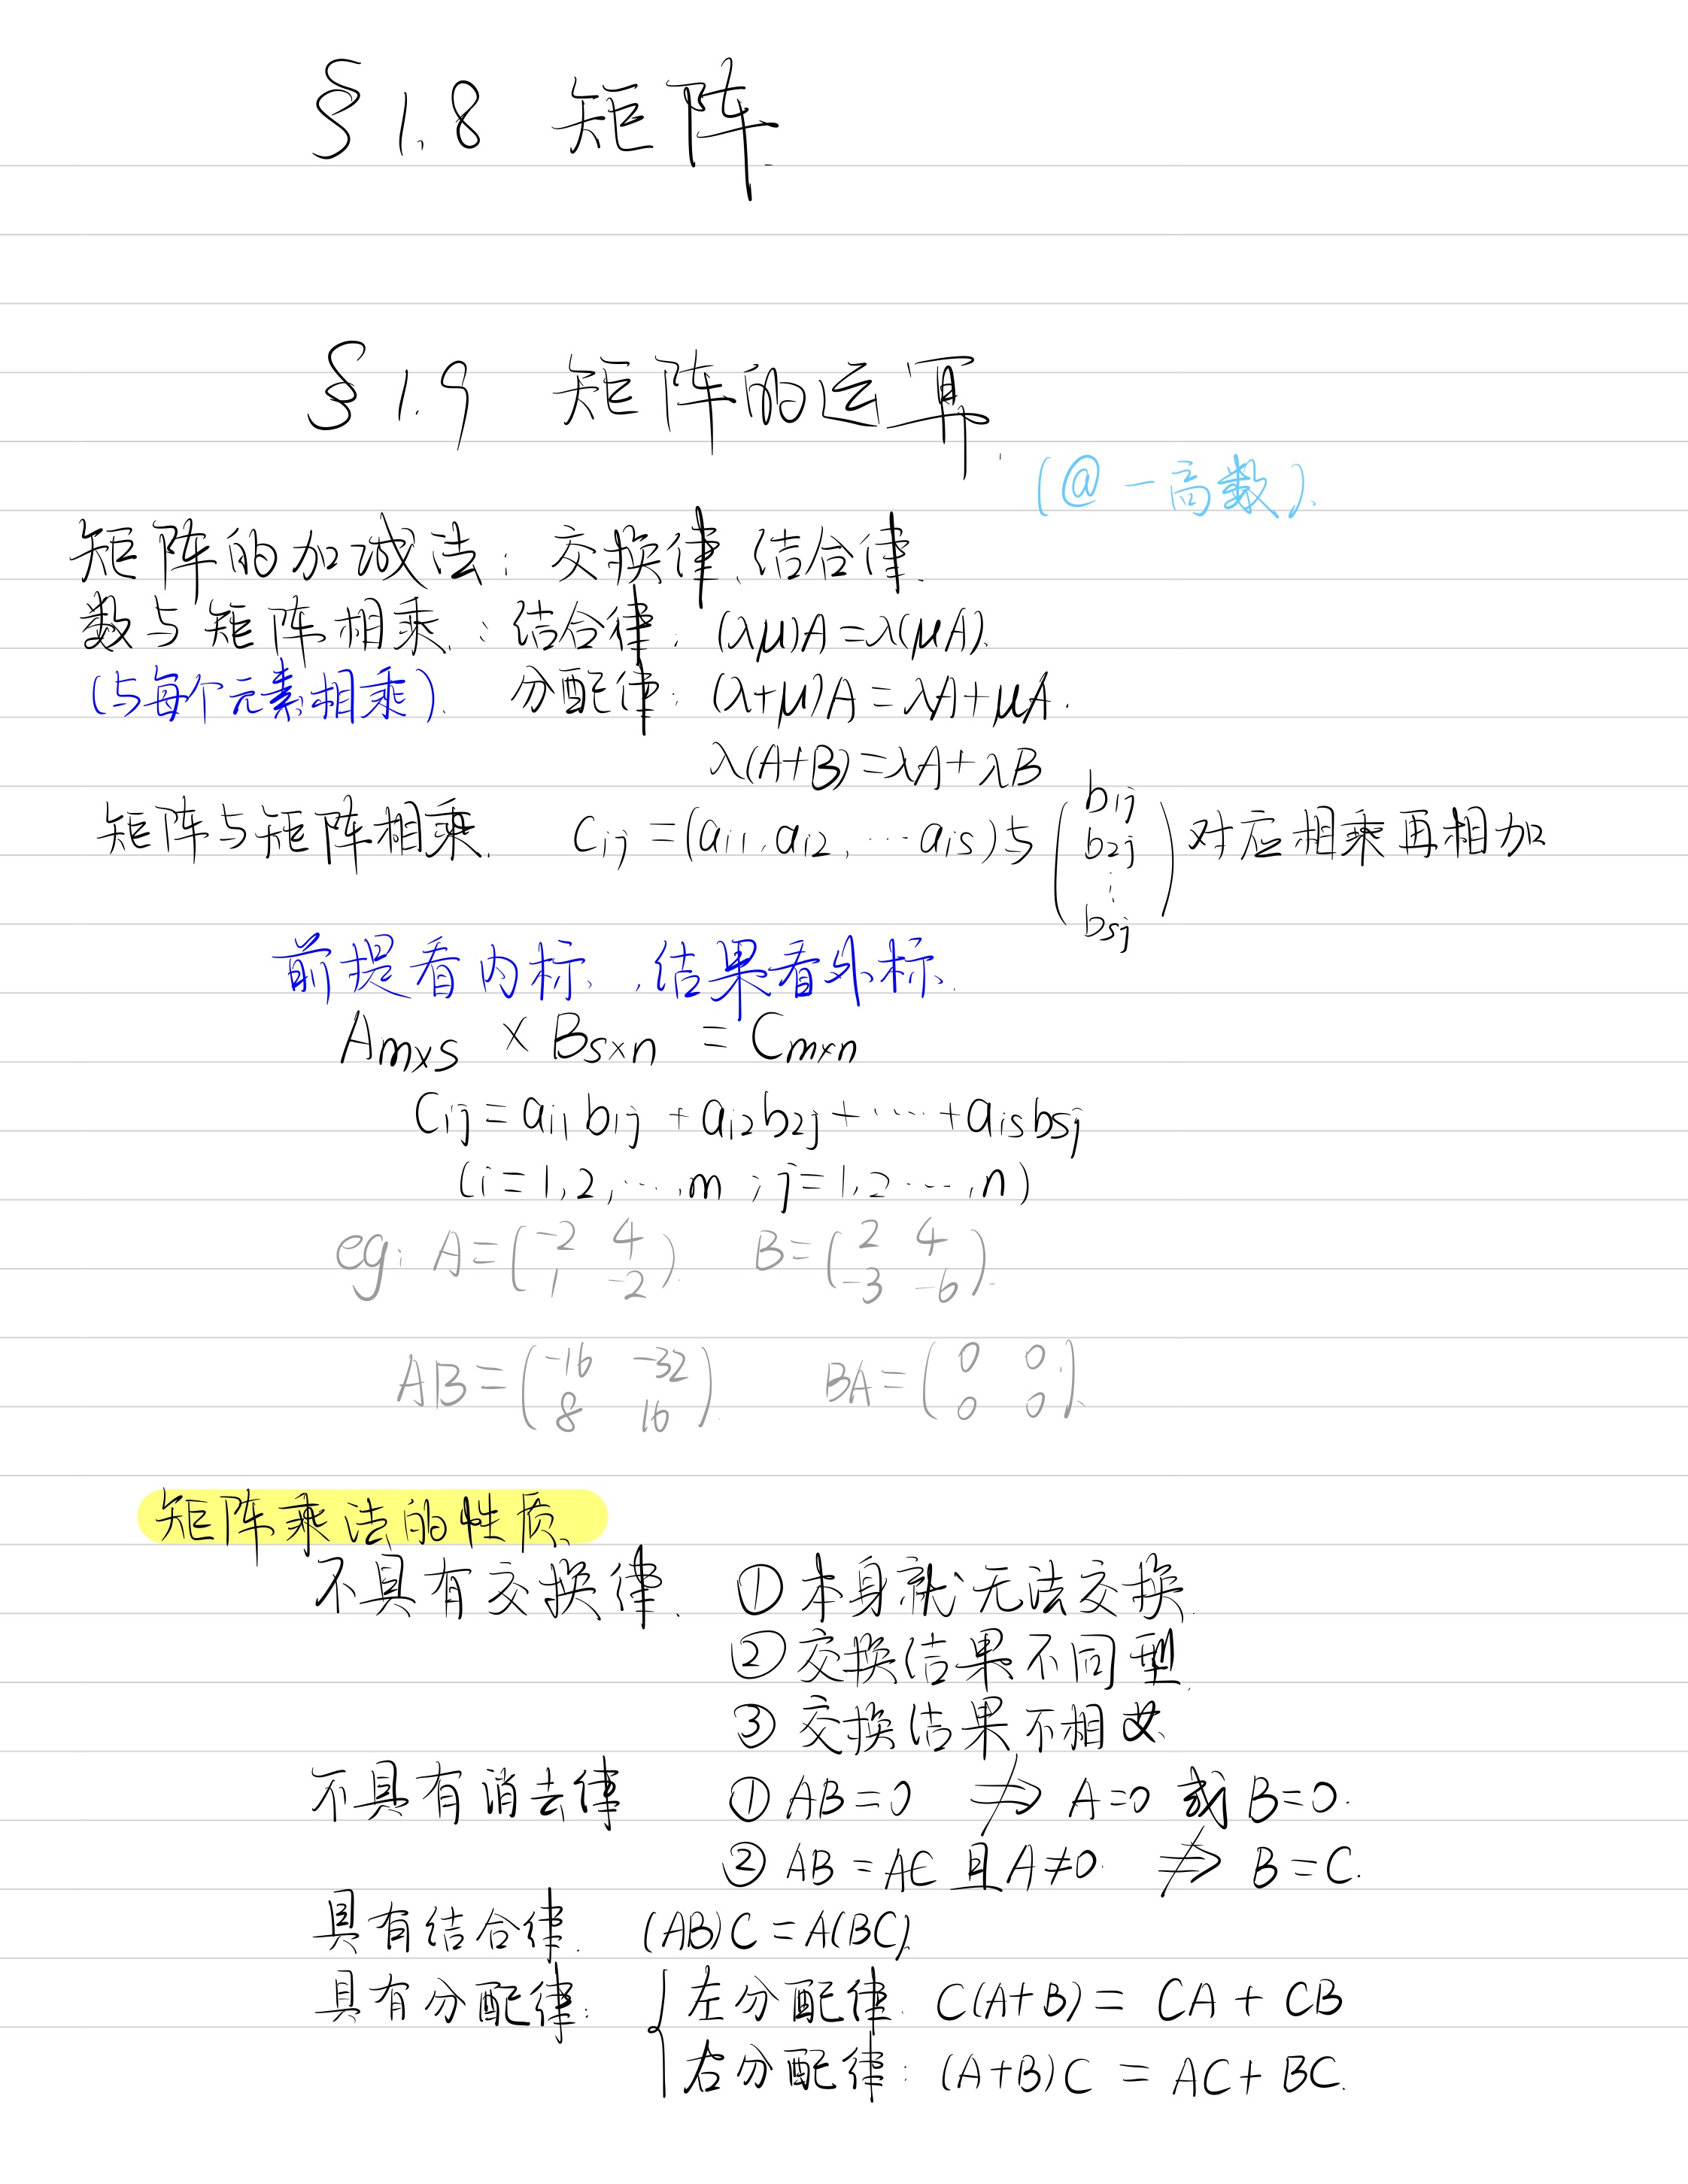 §1.8 矩阵.
§1.9 矩阵的运算.
(@一高数).
矩阵的加减法: 交换律、结合律.
数与矩阵相乘.: 结合律: (λμ)A=λ(μA).
(与每个元素相乘). 分配律: (λ+μ)A=λA+μA.
λ(A+B)=λA+λB
矩阵与矩阵相乘. Cij=(ai1,ai2,…ais)与(b1j b2j ⋮ bsj)对应相乘再相加
前提看内标、,结果看外标.
Am×s × Bs×n = Cm×n
Cij=ai1b1j+ai2b2j+……+aisbsj
(i=1,2,…,m;j=1,2…,n)
eg: A=(-2 4
1 -2). B=(2 4
-3 -6).
AB=(-16 -32
8 16). BA=(0 0
0 0).
矩阵乘法的性质、
不具有交换律. ①本身就无法交换.
②交换结果不同型.
③交换结果不相
不具有消去律 ①AB=0 ⇏ A=0 或 B=0.
②AB=AC 且 A≠0. ⇏ B=C.
具有结合律. (AB)C=A(BC).
具有分配律: { 左分配律. C(A+B)= CA + CB
右分配律: (A+B)C = AC+ BC.